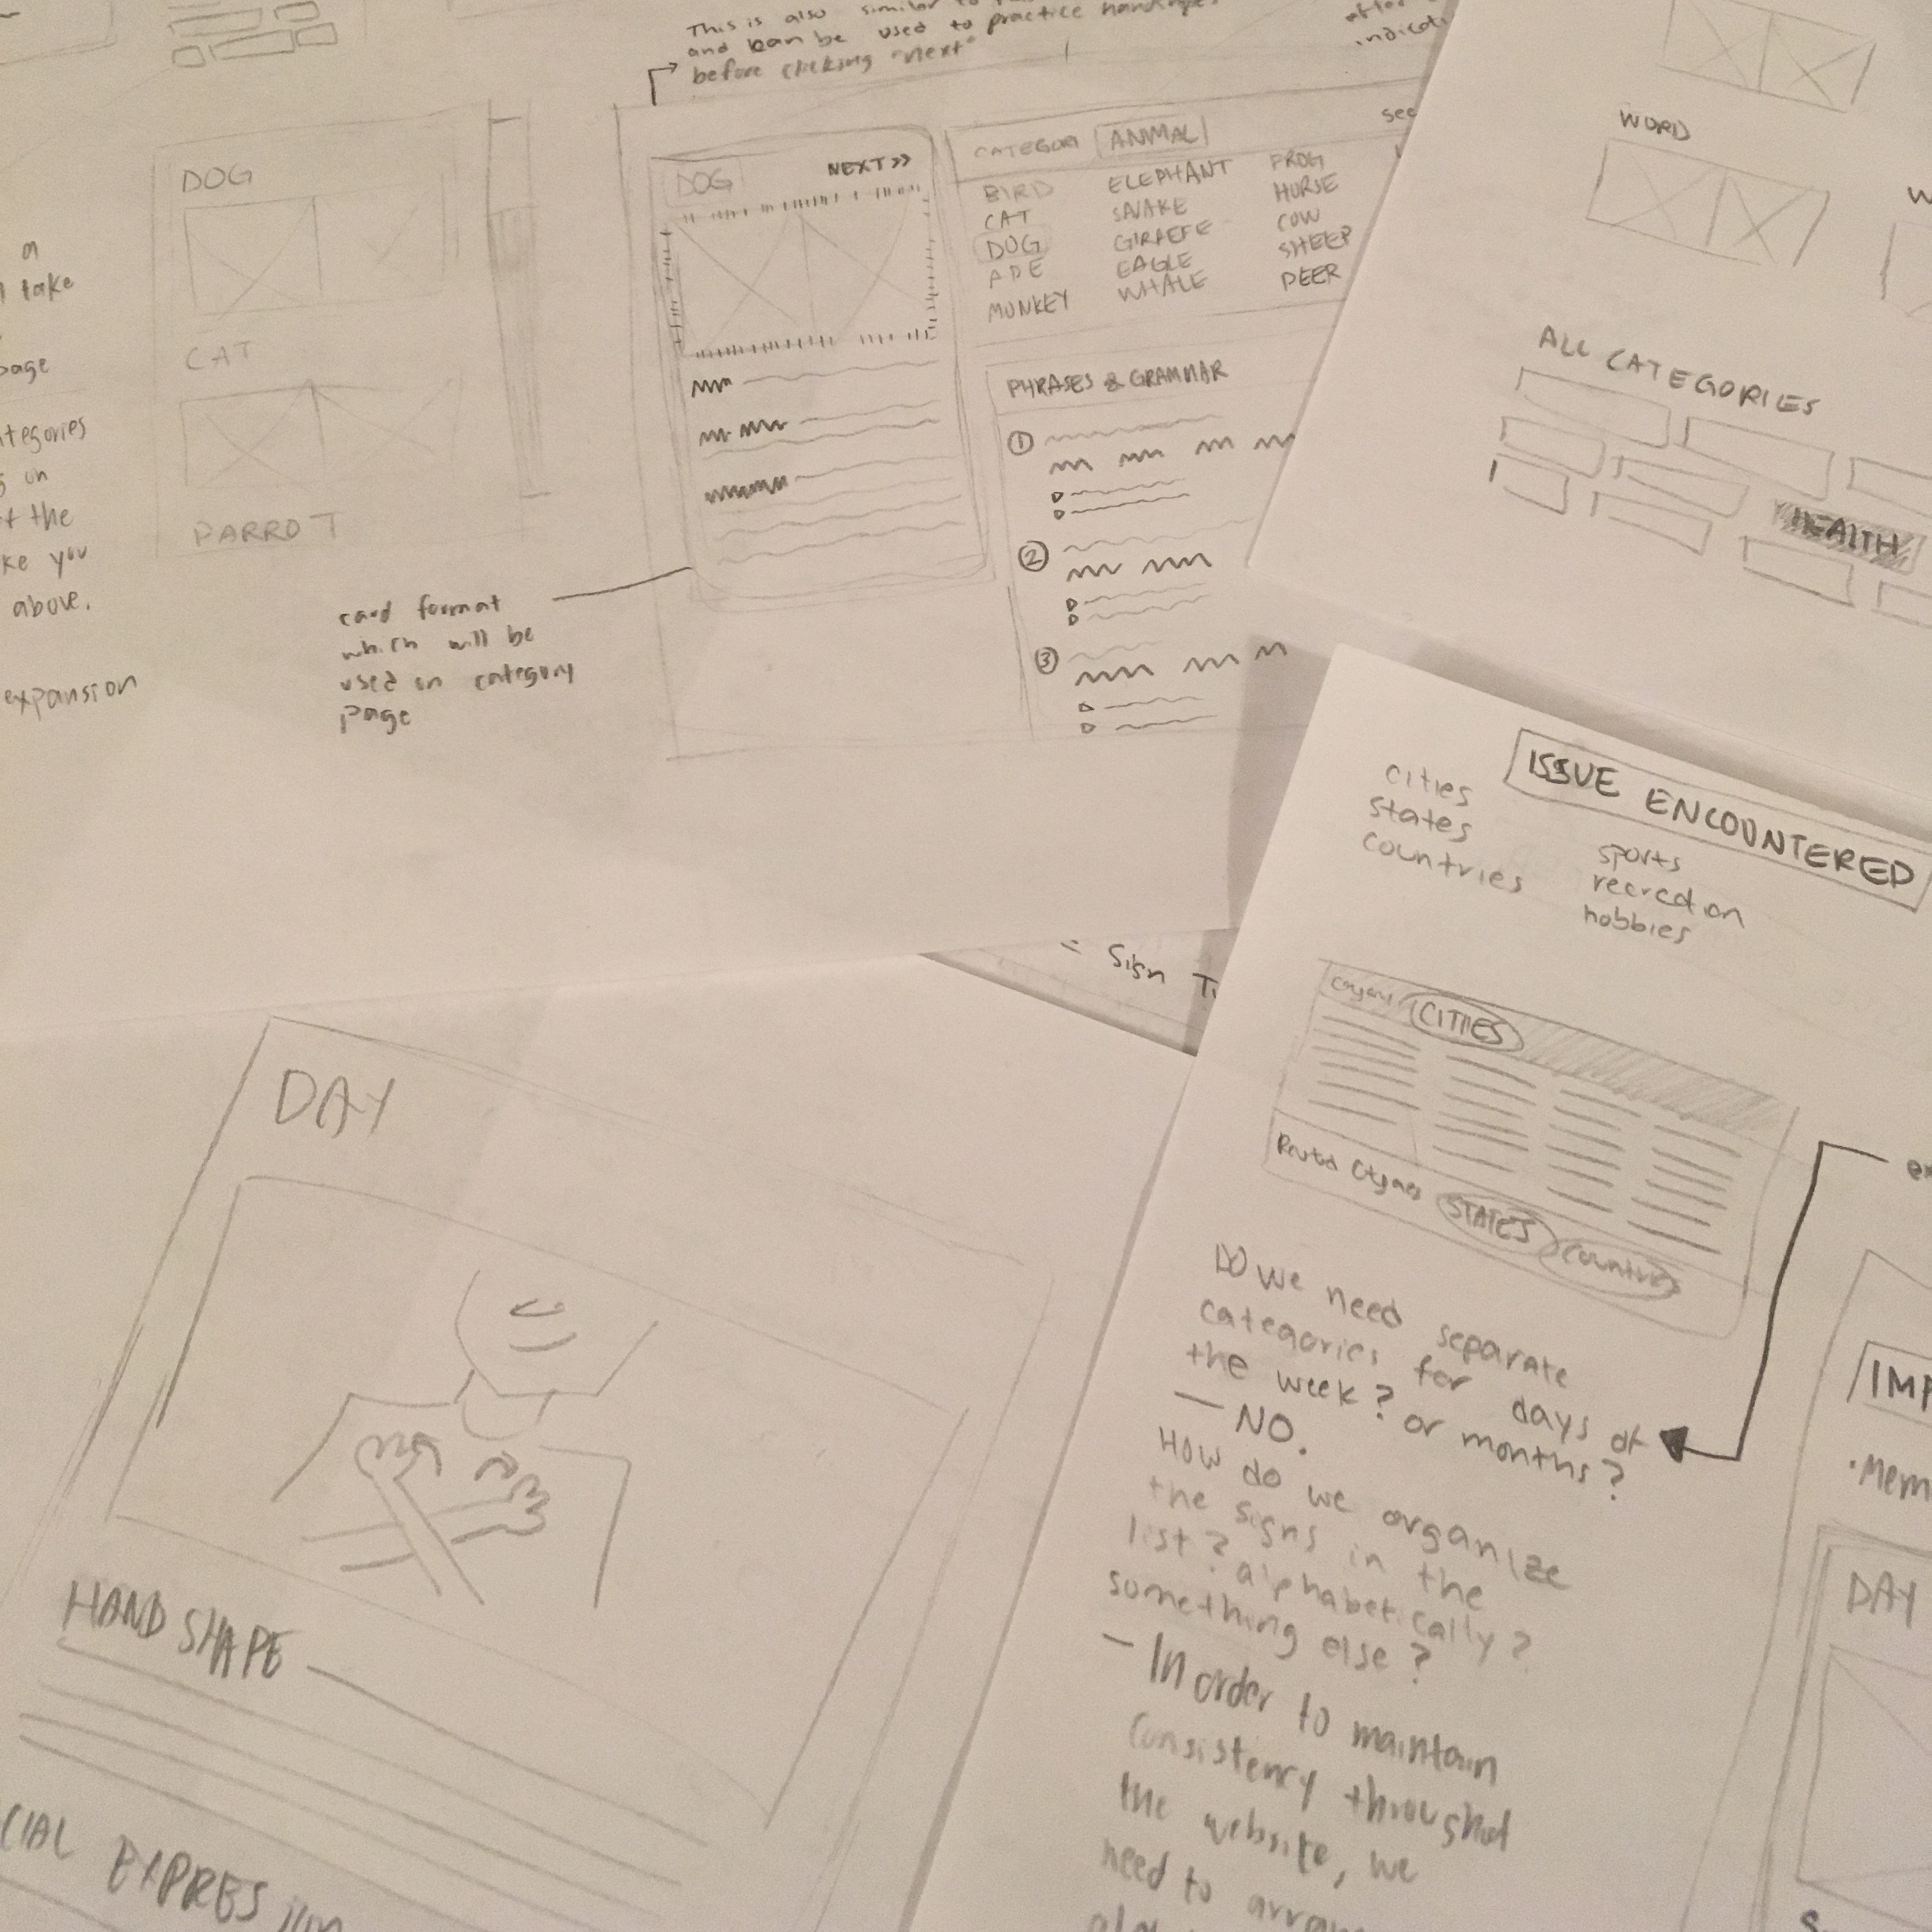 This is also similar to
and can be used to practice handshapes
before clicking "next"
a
take
page
categories
on
the
you
above.
expansion
DOG
CAT
PARROT
card format
which will be
used on category
page
DOG NEXT >>
CATEGORY ANIMAL
BIRD ELEPHANT FROG
CAT SNAKE HORSE
DOG GIRAFFE COW
APE EAGLE SHEEP
MONKEY WHALE DEER
PHRASES & GRAMMAR
1
2
3
WORD
ALL CATEGORIES
HEALTH
ISSUE ENCOUNTERED
cities
states
countries
sports
recreation
hobbies
CITIES
Related
STATES countries
Do we need separate
categories for days of
the week? or months?
— NO.
How do we organize
the signs in the
list? alphabetically?
something else?
— In order to maintain
consistency throughout
the website, we
need to
Sign
DAY
HAND SHAPE
DAY